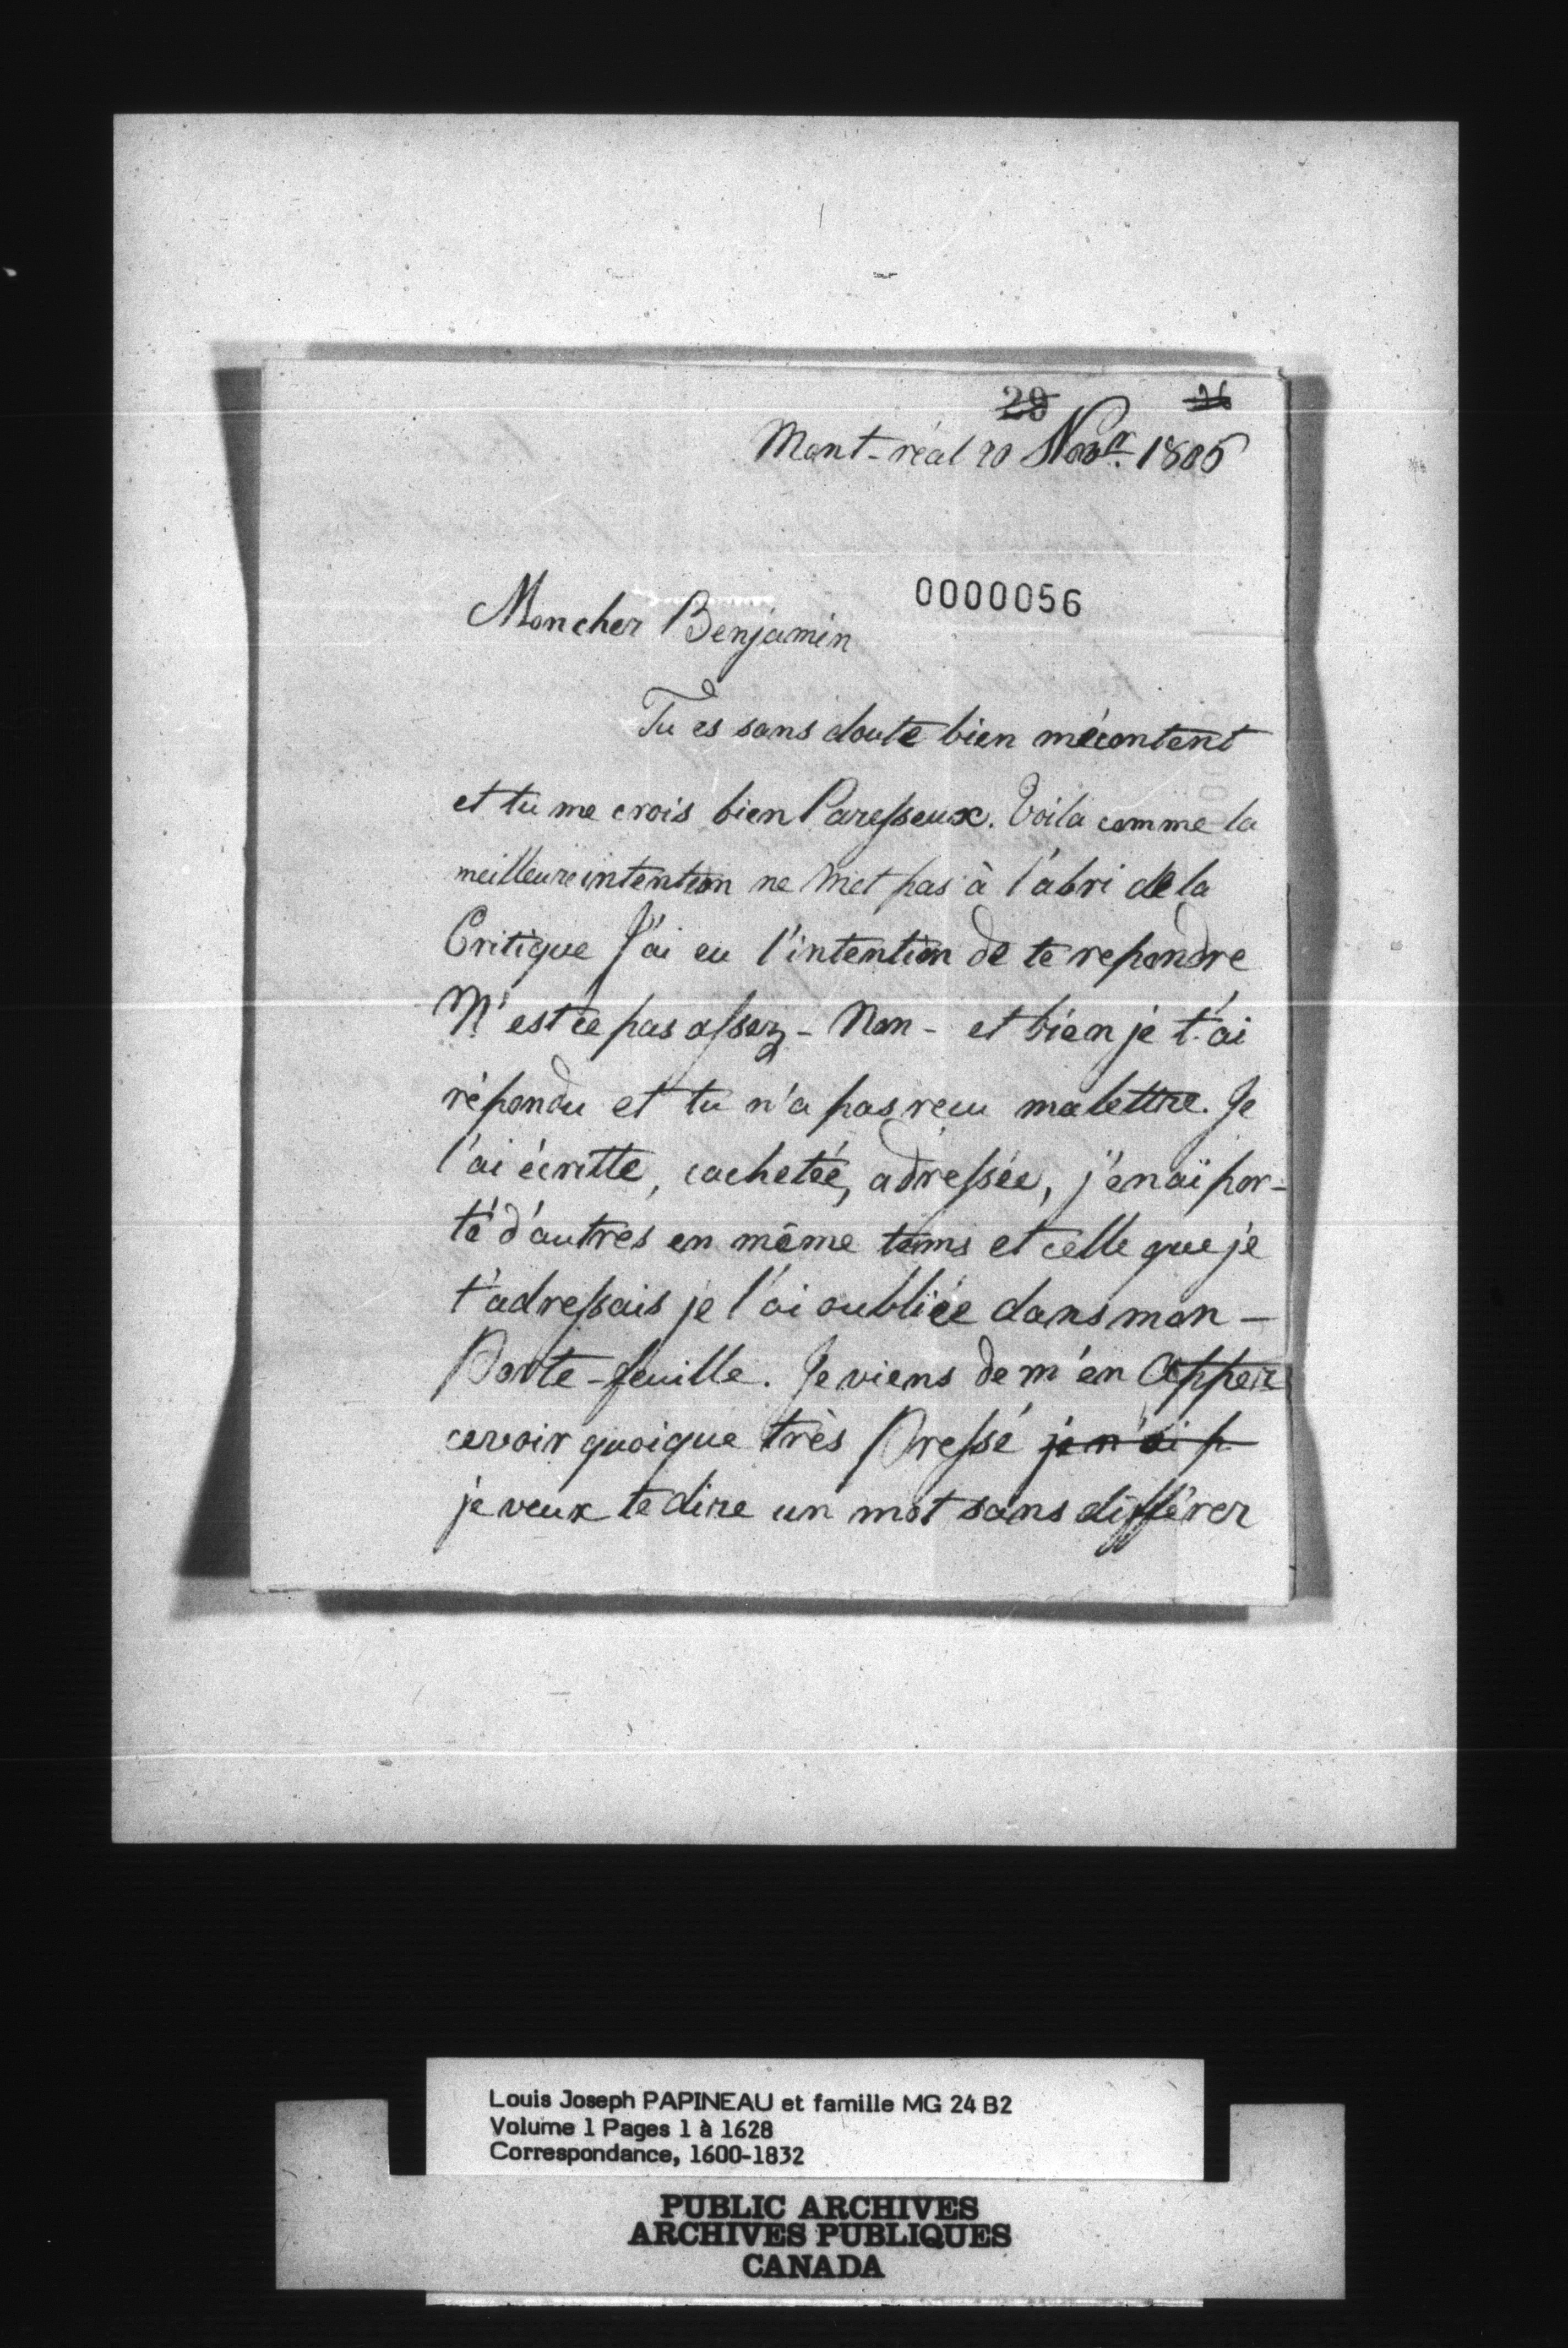 29 26
Mont-réal 20 Novr. 1805
0000056
Mon cher Benjamin
Tu es sans doute bien mécontent
et tu me crois bien Paresseux. Voila comme la
meilleure intention ne met pas à l'abri de la
Critique J'ai eu l'intention de te repondre
N'est ce pas assez - Non - et bien je t'ai
répondu et tu n'a pas reçu ma lettre. Je
l'ai écritte, cachetée, adressée, j'en ai por-
té d'autres en même tems et celle que je
t'adressais je l'ai oubliée dans mon -
Porte-feuille. Je viens de m'en apper
cevoir quoique très Pressé je n'ai p
je veux te dire un mot sans différer
Louis Joseph PAPINEAU et famille MG 24 B2
Volume 1 Pages 1 à 1628
Correspondance, 1600-1832
PUBLIC ARCHIVES
ARCHIVES PUBLIQUES
CANADA